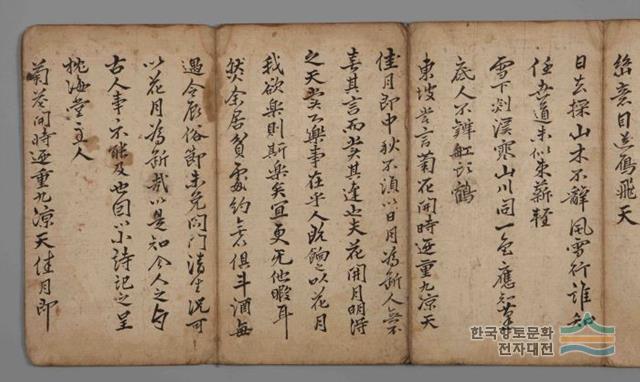 意日送鴈飛天
日去採山木不辭風雪行誰知
任吾道未似束薪輕
雪下剡溪寒山川同一色應知
底人不辨缸頭鶴
東坡嘗言菊花開時迺重九凉天
佳月即中秋不須以日月爲斷人無
喜其言而賞其達也夫花開月明得
之天賞不樂事在乎人既餉之以花月
我欲樂則斯樂矣宜更无他暇耳
然余居貧處約無俱斗酒每
遇令辰俗節未免閉門清坐況可
以花月爲斷哉以是知今人之與
古人事不能及也因以小詩記之呈
枕海堂主人
菊花開時迺重九凉天佳月即
한국향토문화
전자대전